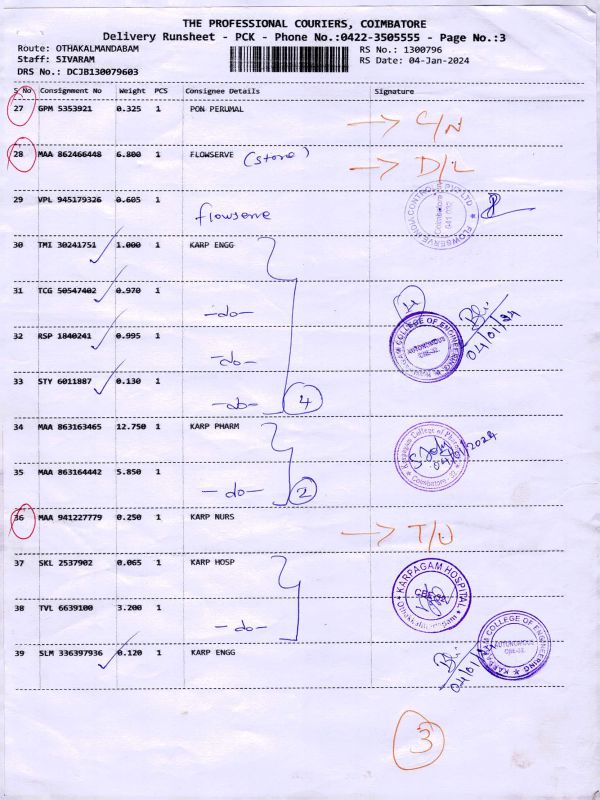 THE PROFESSIONAL COURIERS, COIMBATORE
Delivery Runsheet - PCK - Phone No.:0422-3505555 - Page No.:3
Route: OTHAKALMANDABAM RS No.: 1300796
Staff: SIVARAM RS Date: 04-Jan-2024
DRS No.: DCJB130079603
S No Consignment No Weight PCS Consignee Details Signature
27 GPM 5353921 0.325 1 PON PERUMAL → C/N
28 MAA 862466448 6.800 1 FLOWSERVE (store) → D/L
29 VPL 945179326 0.605 1 flowserve
FLOWSERVE Coimbatore 641 032
30 TMI 30241751 1.000 1 KARP ENGG
31 TCG 50547402 0.970 1 -do- 4
32 RSP 1840241 0.995 1 -do- 04/01/24
KARPAGAM COLLEGE OF ENGINEERING AUTONOMOUS CBE-32.
33 STY 6011887 0.130 1 -do- 4
34 MAA 863163465 12.750 1 KARP PHARM
Karpagam College of Pharmacy Coimbatore - 32 04/01/2024
35 MAA 863164442 5.850 1 -do- 2
36 MAA 941227779 0.250 1 KARP NURS → T/O
37 SKL 2537902 0.065 1 KARP HOSP
KARPAGAM HOSPITAL
38 TVL 6639100 3.200 1 -do-
39 SLM 336397936 0.120 1 KARP ENGG
KARPAGAM COLLEGE OF ENGINEERING AUTONOMOUS CBE-32.
3